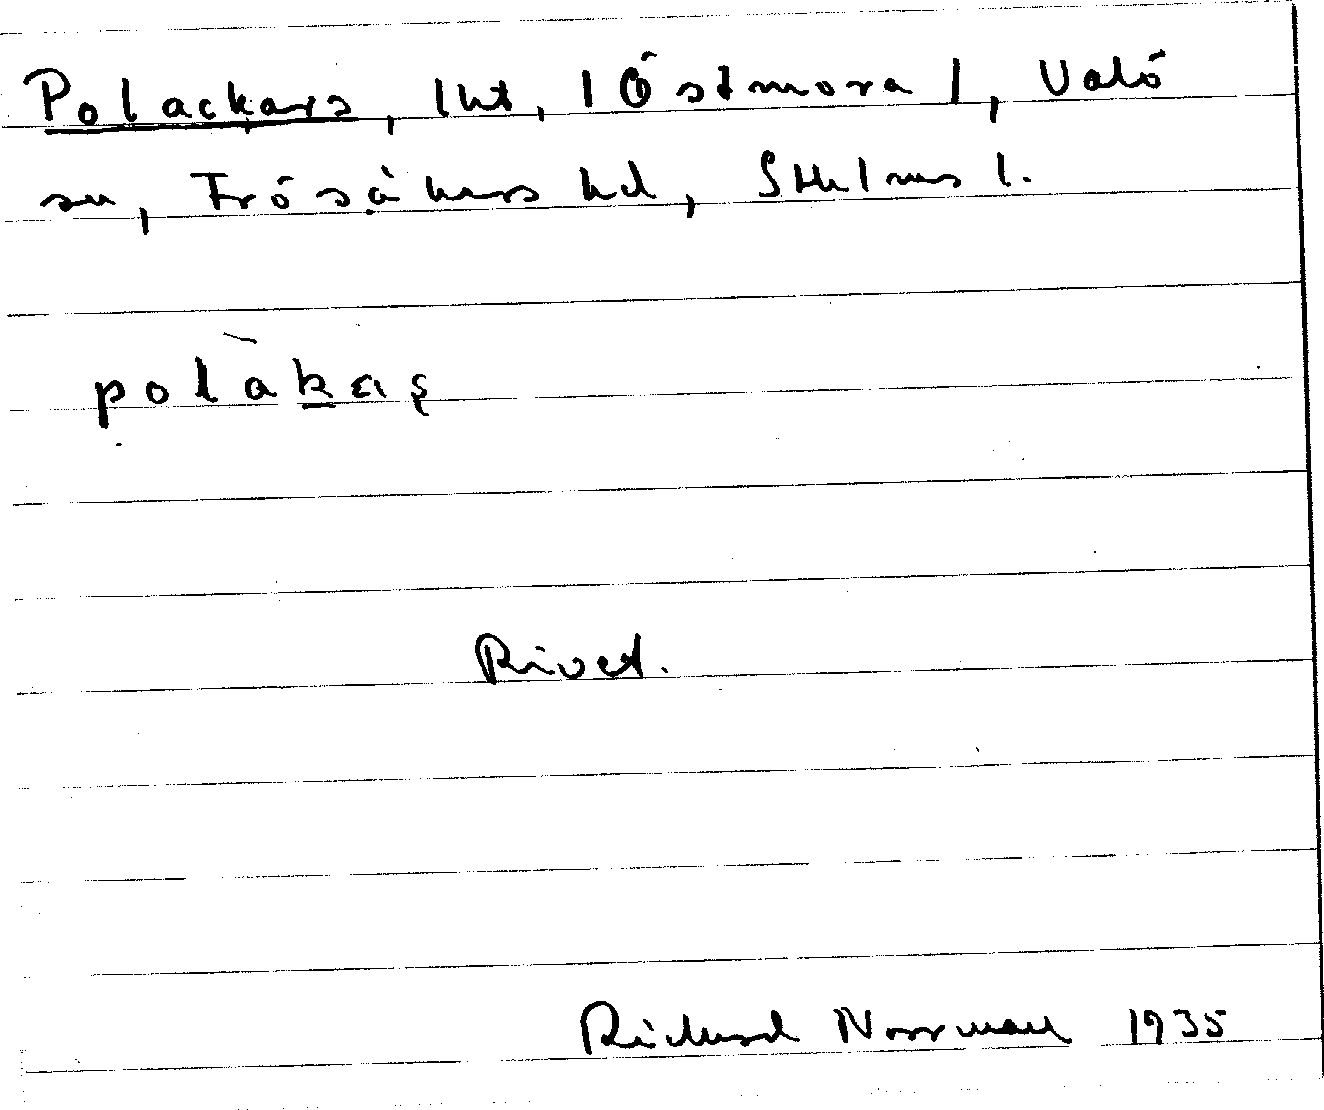 Polackars, lht, 1 Östmora 1, Valö
sn, Frösåkers hd, Sthlms l.
polakaș
Rivet.
Richard Norrman 1935